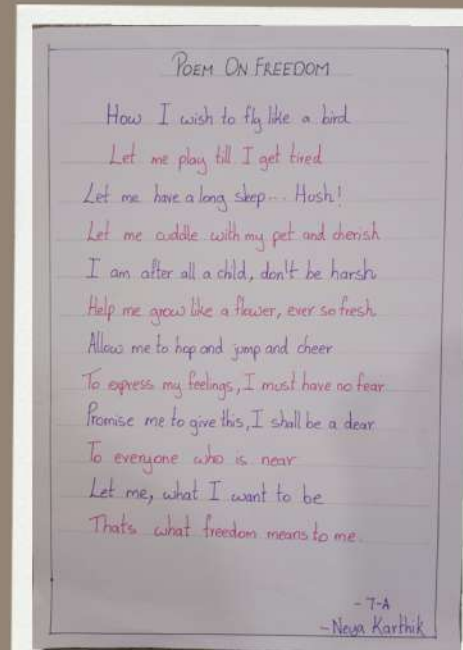 POEM ON FREEDOM
How I wish to fly like a bird
Let me play till I get tired
Let me have a long sleep... Hush!
Let me cuddle with my pet and cherish
I am after all a child, don't be harsh
Help me grow like a flower, ever so fresh
Allow me to hop and jump and cheer
To express my feelings, I must have no fear
Promise me to give this, I shall be a dear
To everyone who is near
Let me, what I want to be
Thats what freedom means to me.
- 7-A
- Neya Karthik